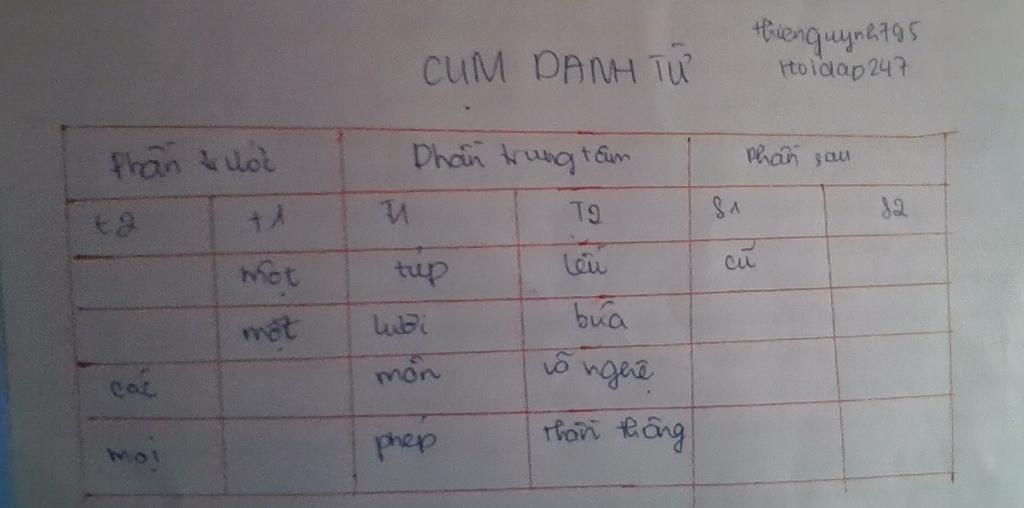 thienquynh795
Hoidap247
CỤM DANH TỪ
Phần trước Phần trung tâm Phần sau
t2 t1 T1 T2 S1 S2
một túp lều cũ
một lưỡi búa
các môn võ nghệ
mọi phép thần thông